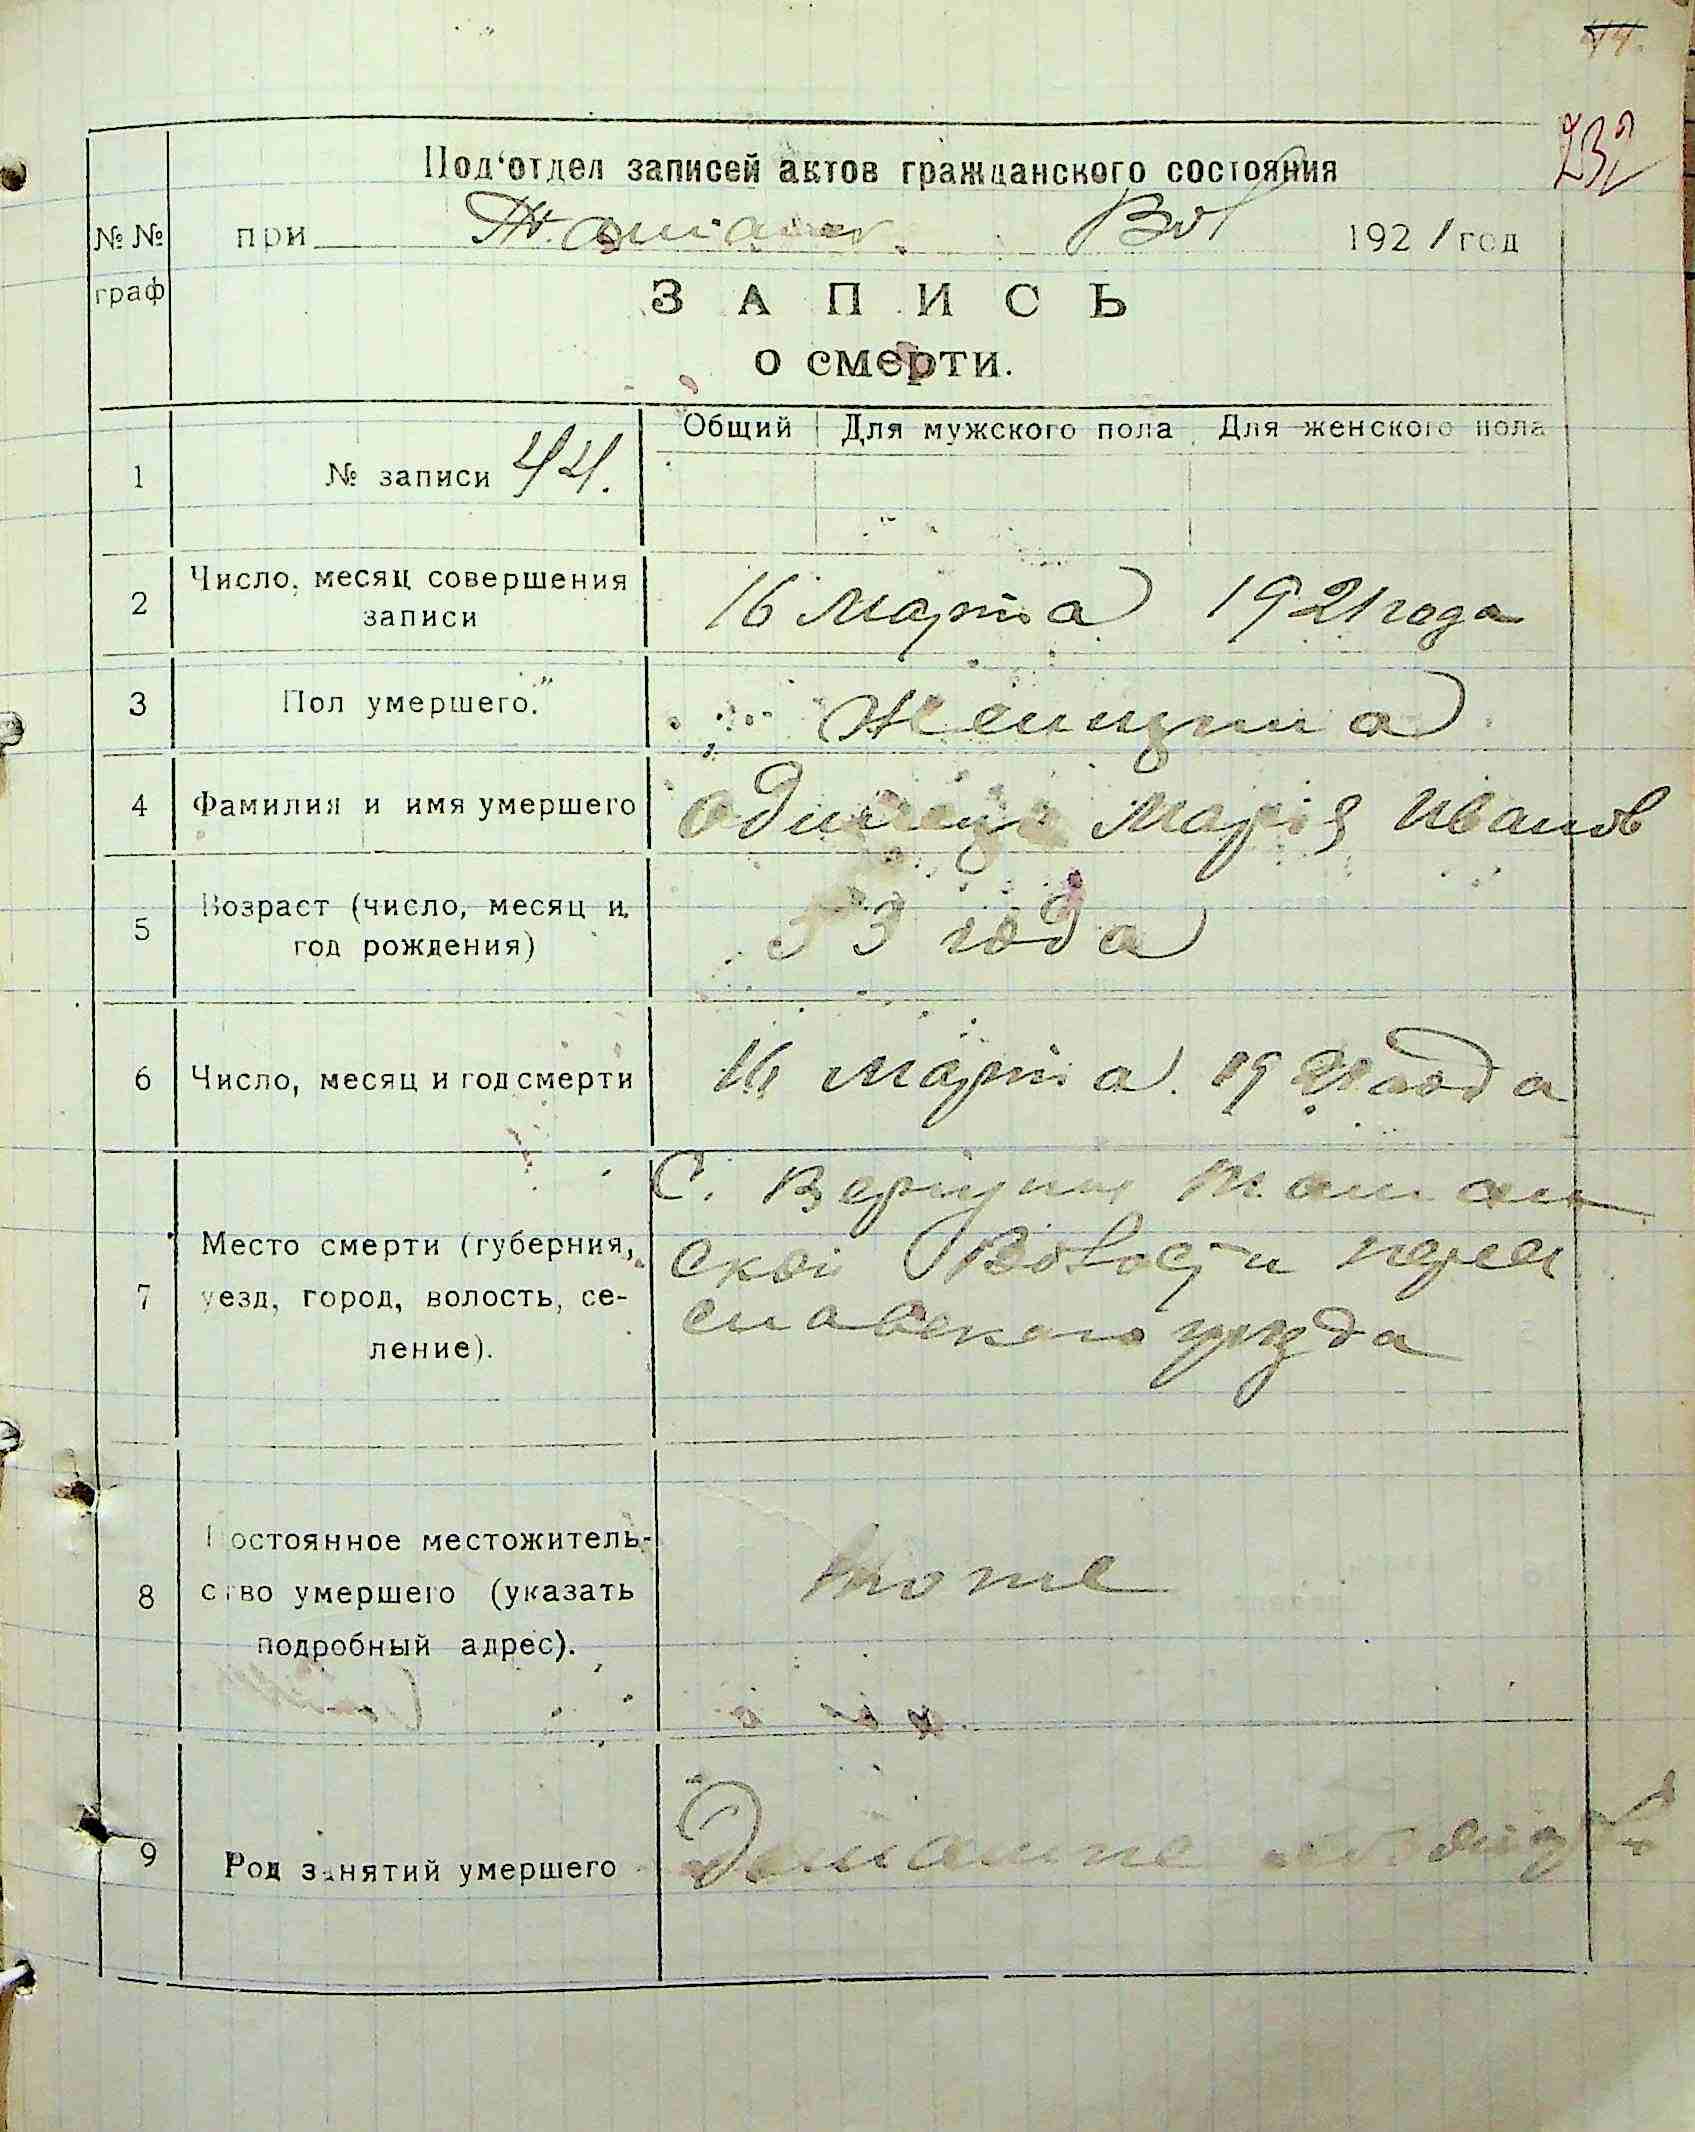 232
Под'отдел записей актов гражданского состояния
№ №
граф
при Ташан. Вол 1921 год
ЗАПИСЬ
о смерти.
Общий Для мужского пола Для женского пола
1 № записи 44.
2 Число, месяц совершения
записи
16 марта 1921 года
3 Пол умершего.
Женщина
4 Фамилия и имя умершего
Одинець Марія Иванов
5 Возраст (число, месяц и
год рождения)
53 года
6 Число, месяц и год смерти
16 Марта 1921 года
7 Место смерти (губерния,
уезд, город, волость, се-
ление).
С. Ташан
ской Волости перея
славского уезда
8 Постоянное местожитель-
ство умершего (указать
подробный адрес).
тоже
9 Род занятий умершего
Домашне